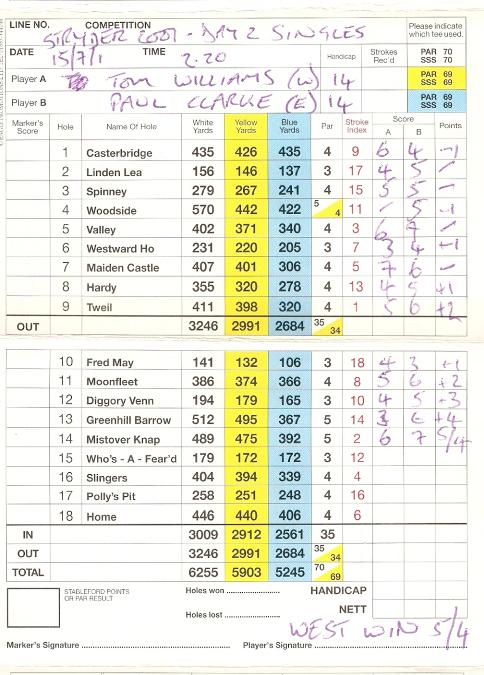 LINE NO. COMPETITION Please indicate which tee used.
STRYDER 2001 - DAY 2 SINGLES
DATE 15/7/1 TIME 2.20 Handicap Strokes Rec'd PAR 70 SSS 70
Player A TOM WILLIAMS (W) 14 PAR 69 SSS 69
Player B PAUL CLARKE (E) 14 PAR 69 SSS 69
Marker's Score Hole Name Of Hole White Yards Yellow Yards Blue Yards Par Stroke Index Score A B Points
1 Casterbridge 435 426 435 4 9 6 4 -1
2 Linden Lea 156 146 137 3 17 4 5 -
3 Spinney 279 267 241 4 15 5 5 -
4 Woodside 570 442 422 5 4 11 - 5 -1
5 Valley 402 371 340 4 3 6 7 -
6 Westward Ho 231 220 205 3 7 3 4 +1
7 Maiden Castle 407 401 306 4 5 7 6 -
8 Hardy 355 320 278 4 13 4 5 +1
9 Tweil 411 398 320 4 1 5 6 +2
OUT 3246 2991 2684 35 34
10 Fred May 141 132 106 3 18 4 3 +1
11 Moonfleet 386 374 366 4 8 5 6 +2
12 Diggory Venn 194 179 165 3 10 4 5 +3
13 Greenhill Barrow 512 495 367 5 14 6 +4
14 Mistover Knap 489 475 392 5 2 6 7 5/4
15 Who's - A - Fear'd 179 172 172 3 12
16 Slingers 404 394 339 4 4
17 Polly's Pit 258 251 248 4 16
18 Home 446 440 406 4 6
IN 3009 2912 2561 35
OUT 3246 2991 2684 35 34
TOTAL 6255 5903 5245 70 69
STABLEFORD POINTS OR PAR RESULT Holes won HANDICAP
Holes lost NETT
WEST WIN 5/4
Marker's Signature Player's Signature